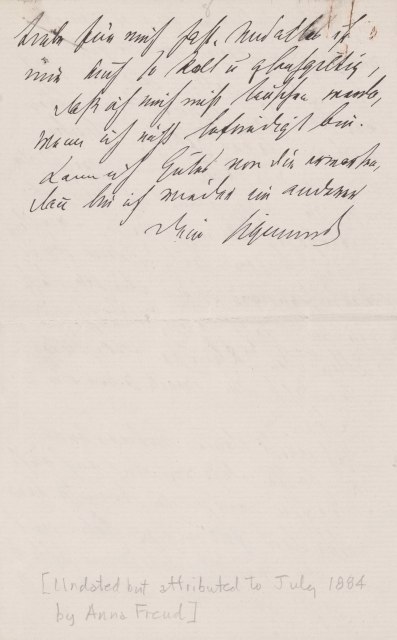 für mich hast. Und alles ist
mir auch so kalt u gleichgiltig,
daß ich mich nicht täuschen werde,
wenn ich nicht befriedigt bin.
Kann ich Gutes von Dir erwarten,
dann bin ich wieder ein anderer
Dein Sigmund
[Undated but attributed to July 1884
by Anna Freud]